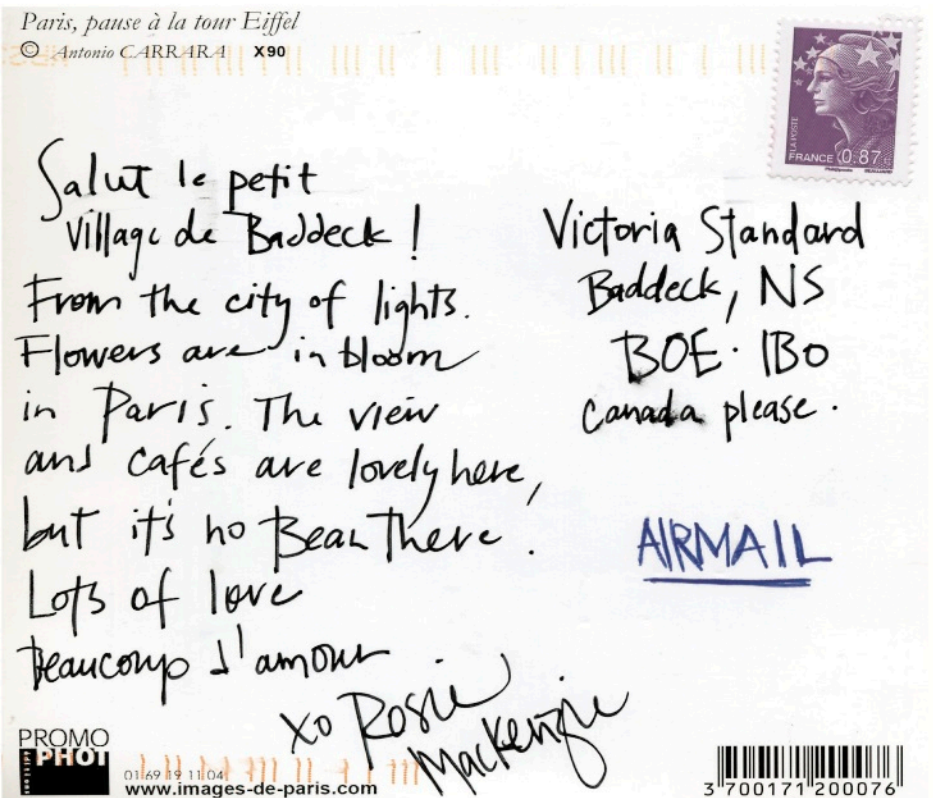 Paris, pause à la tour Eiffel
© Antonio CARRARA X90
LA POSTE
FRANCE 0.87€
Salut le petit
Village de Baddeck !
From the city of lights.
Flowers are in bloom
in Paris. The view
and cafés are lovely here,
but it's no Bean There.
Lots of love
Beaucoup d'amour
xo Rosie
MacKenzie
Victoria Standard
Baddeck, NS
BOE · 1BO
Canada please.
AIRMAIL
PROMO
PHOT
01 69 19 11 04
www.images-de-paris.com
3 700171 200076